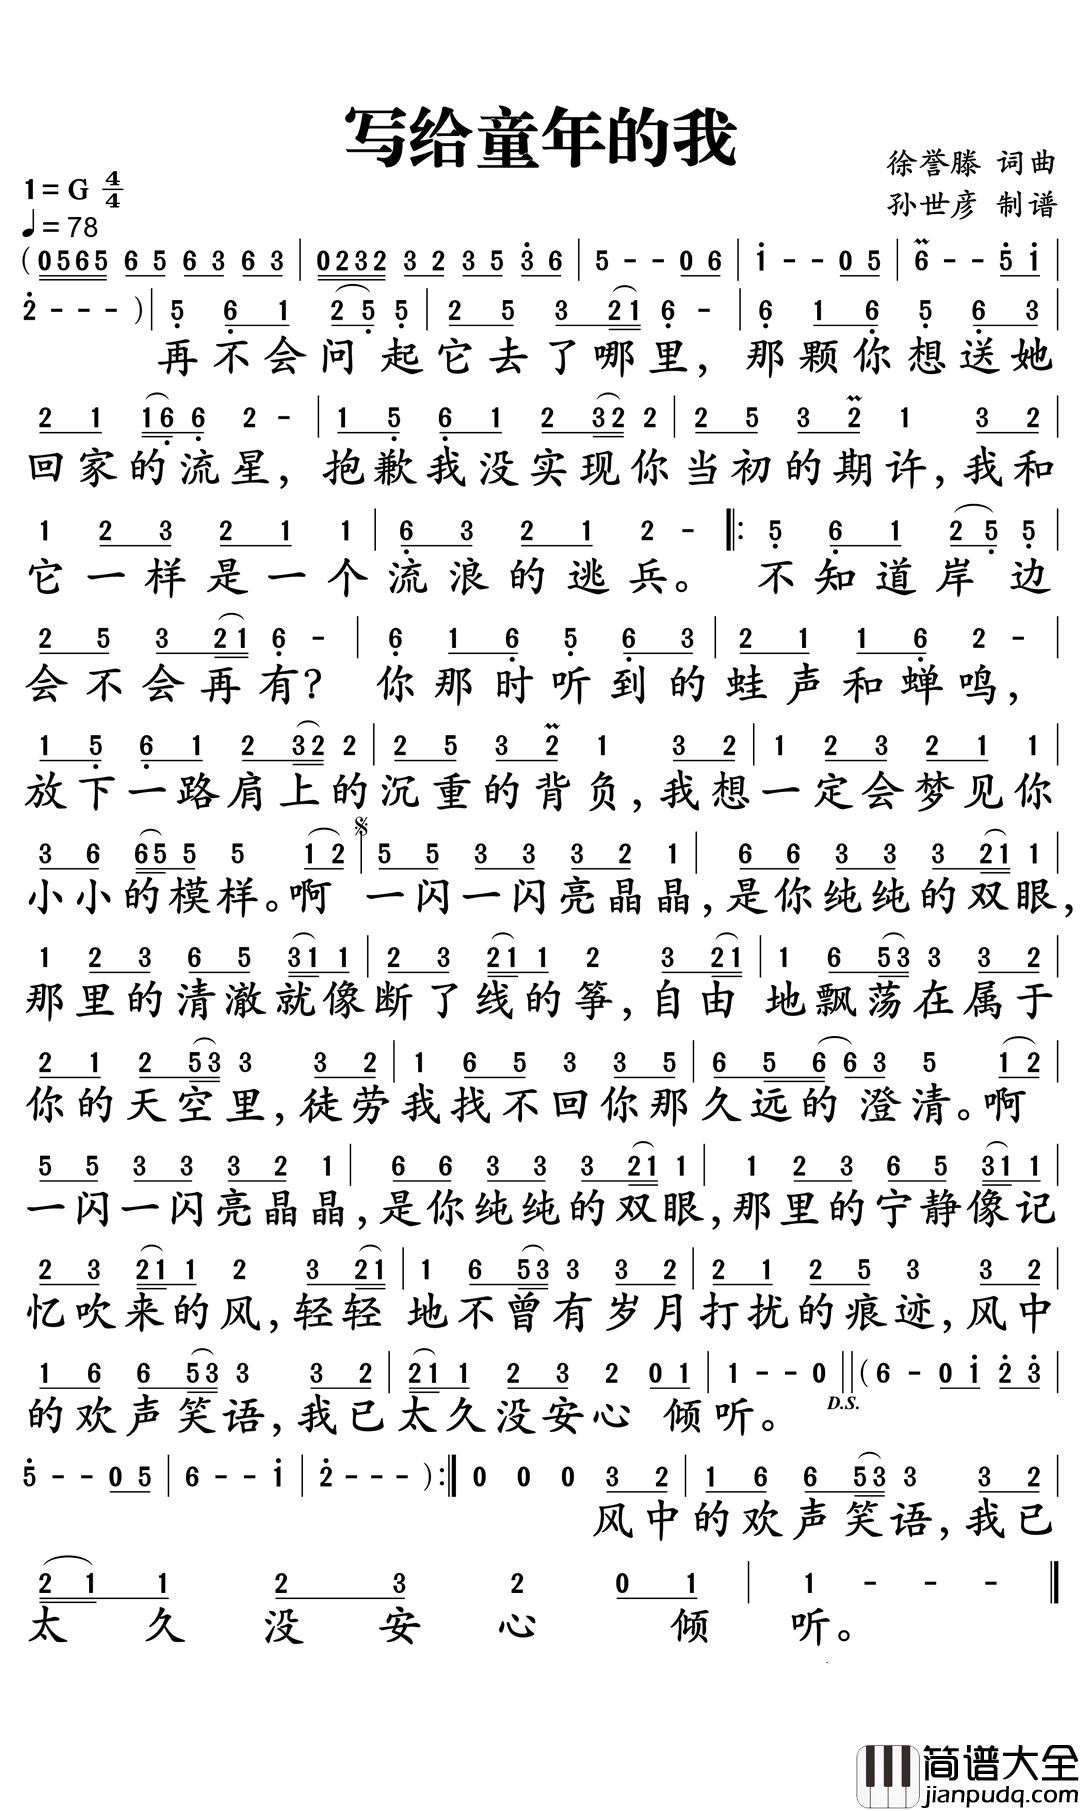 写给童年的我
徐誉滕 词曲
1=G 4/4
孙世彦 制谱
♩=78
(0565 65 63 63 | 0232 32 35 36 | 5 - - 06 | 1 - - 05 | 6 - - 51 |
2 - - - ) | 5 61 25 5 | 25 321 6 - | 6 16 5 63 |
再不会问起它去了哪里,那颗你想送她
21 166 2 - | 15 61 232 2 | 25 32 1 32 |
回家的流星,抱歉我没实现你当初的期许,我和
1 23 21 1 | 63 21 2 - ‖: 5 61 25 5 |
它一样是一个流浪的逃兵。 不知道岸边
25 321 6 - | 6 16 5 63 | 21 16 2 - |
会不会再有? 你那时听到的蛙声和蝉鸣,
15 61 232 2 | 25 32 1 32 | 1 23 21 1 |
放下一路肩上的沉重的背负,我想一定会梦见你
36 655 5 12 | 55 33 32 1 | 66 33 321 1 |
小小的模样。啊 一闪一闪亮晶晶,是你纯纯的双眼,
1 23 65 311 | 23 211 2 321 | 1 653 3 32 |
那里的清澈就像断了线的筝,自由 地飘荡在属于
21 253 3 32 | 1 65 3 35 | 656 63 5 12 |
你的天空里,徒劳我找不回你那久远的 澄清。啊
55 33 32 1 | 66 33 321 1 | 1 23 65 311 |
一闪一闪亮晶晶,是你纯纯的双眼,那里的宁静像记
23 211 2 321 | 1 653 3 32 | 21 25 3 32 |
忆吹来的风,轻轻 地不曾有岁月打扰的痕迹,风中
16 653 3 32 | 211 23 2 01 | 1 - - 0 ‖ (6 - 01 23 |
D.S.
的欢声笑语,我已太久没安心 倾听。
5 - - 05 | 6 - - 1 | 2 - - - ) :‖ 0 0 0 32 | 16 653 3 32 |
风中的欢声笑语,我已
211 23 2 01 | 1 - - - ‖
太久没安心倾听。
简谱大全
jianpudq.com